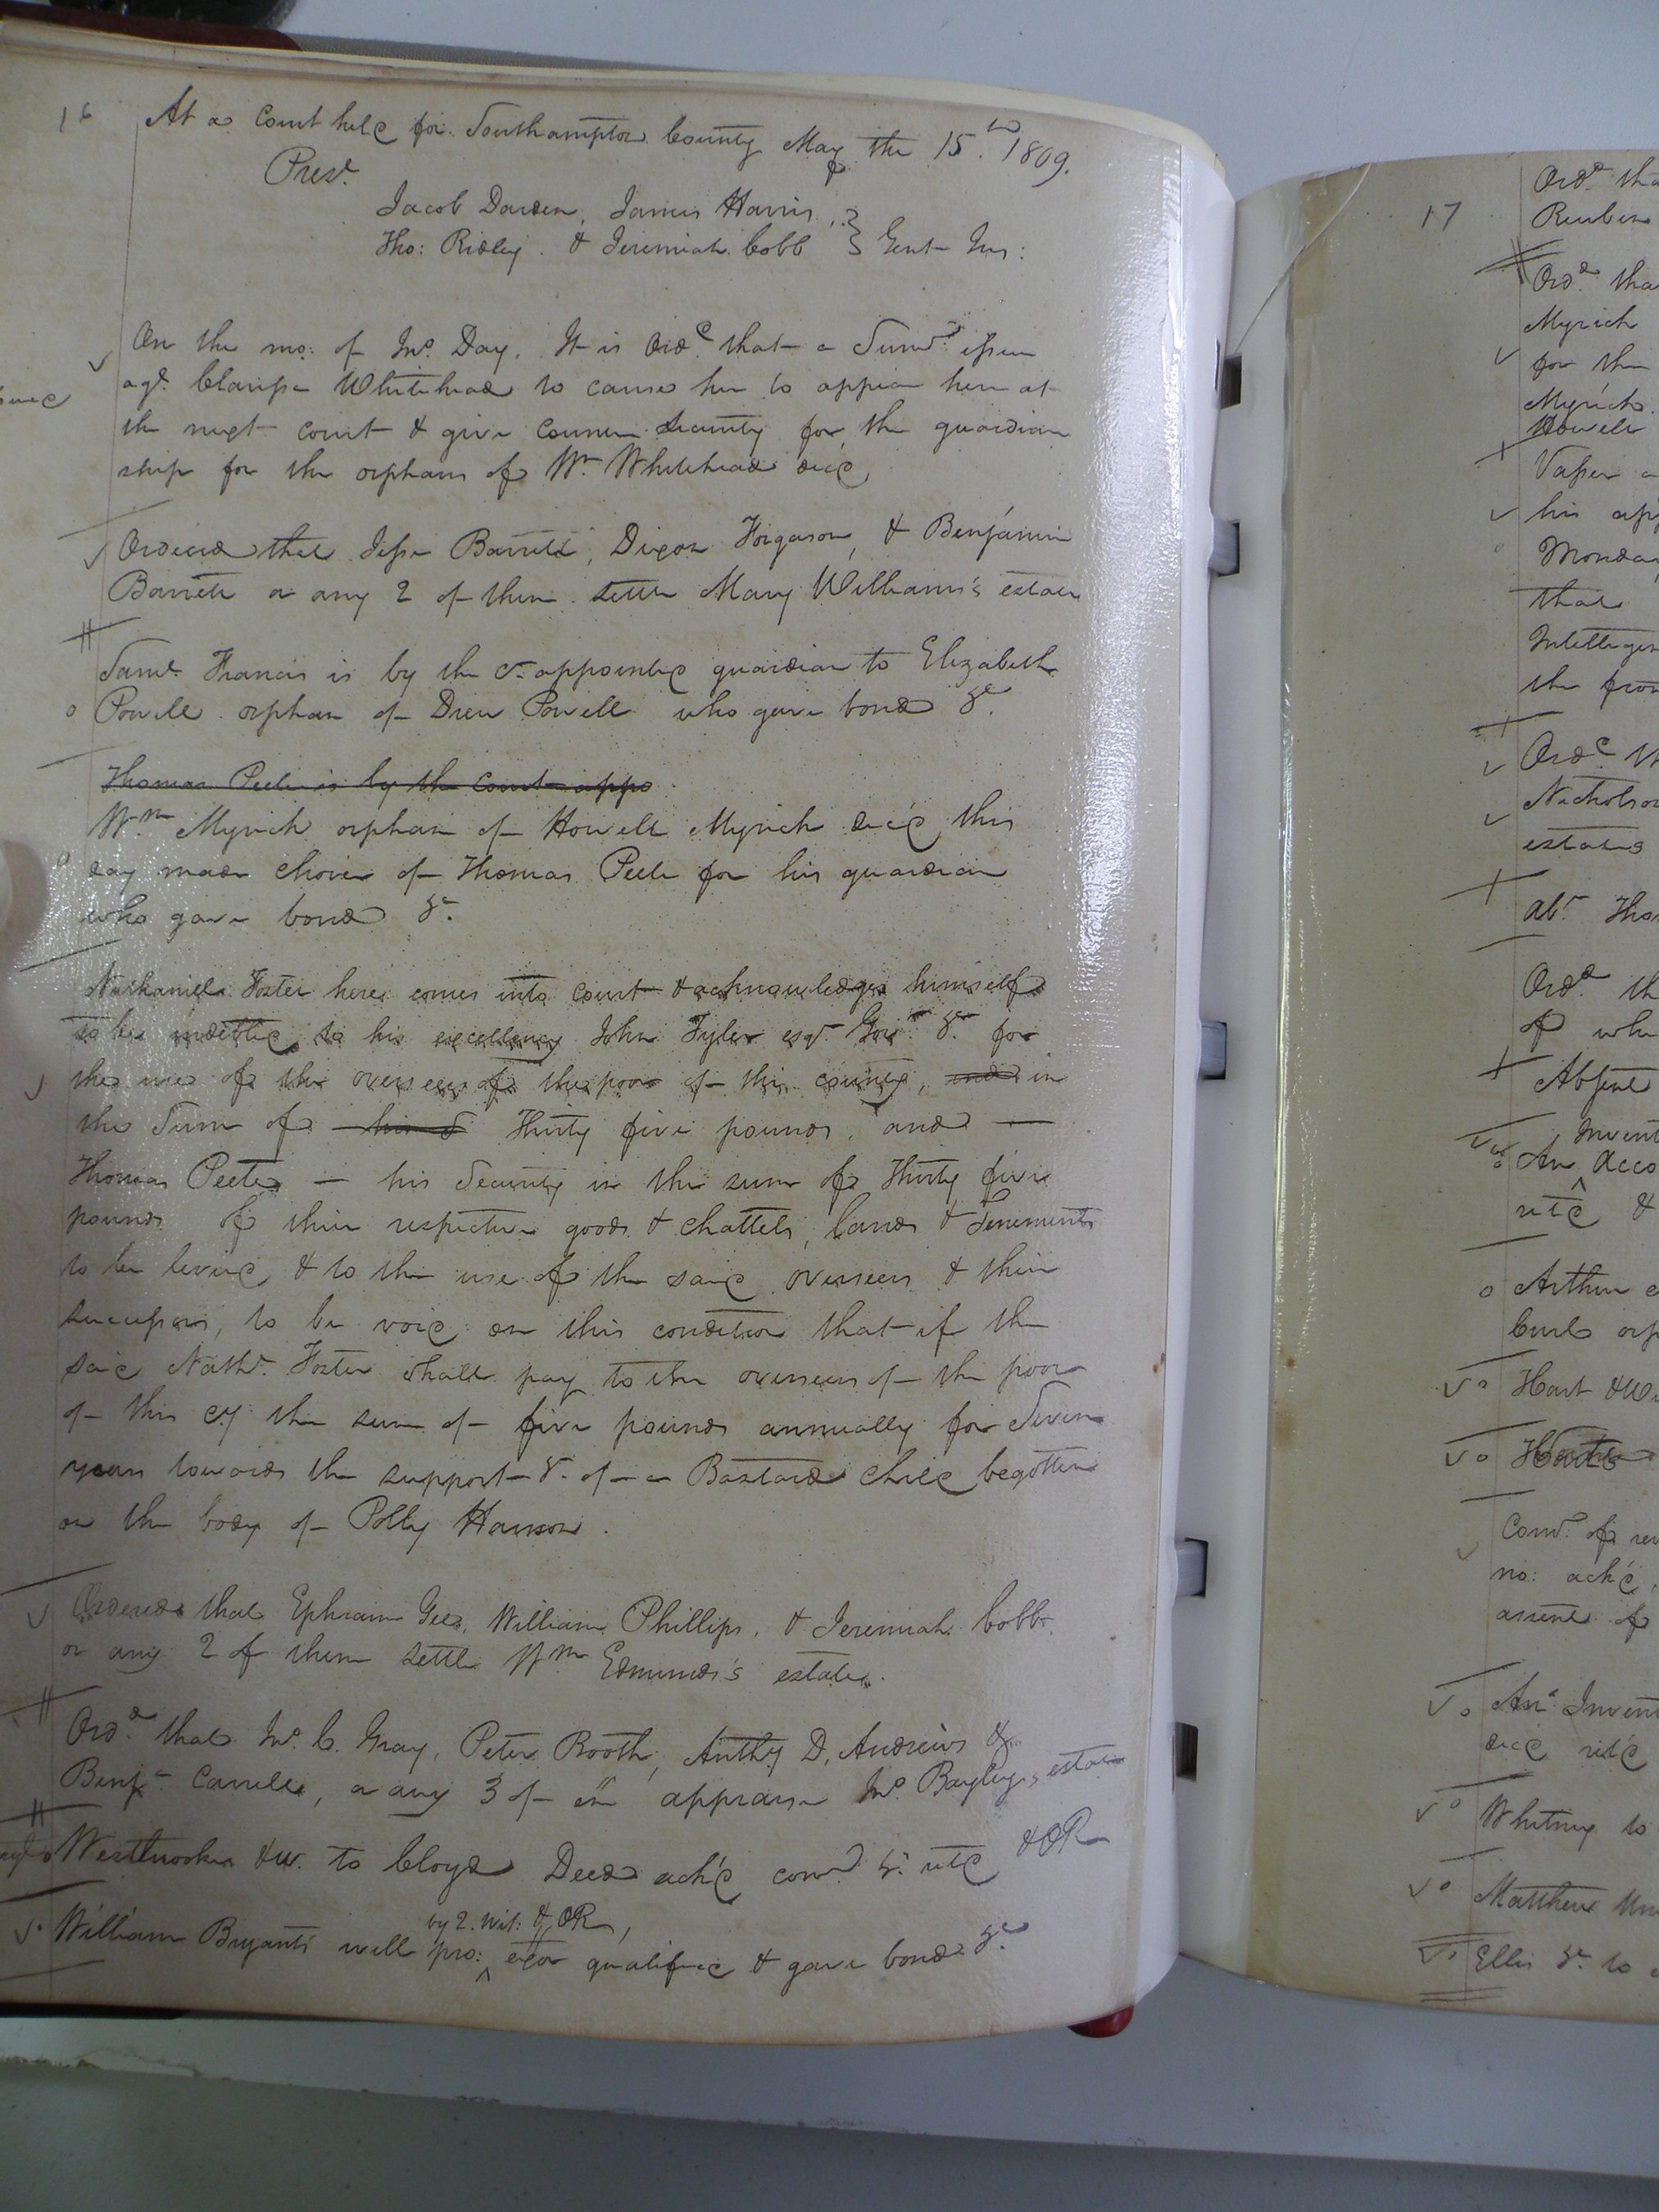 16
At a Court held for Southampton County May the 15th 1809.
Prest
Jacob Darden, James Harris,
Tho: Ridley. & Jeremiah Cobb } Gent Jus:
On the mo: of Jno. Day. It is Ord. that a Sums. issue
agt. Clarissa Whitehead to cause her to appear here at
the next court & give counter security for the guardian
ship for the orphans of Wm Whitehead decd
Ordered that Jesse Barrett, Dixon Forgason, & Benjamin
Barrett or any 2 of them settle Mary Williams's estate
Saml. Francis is by the Ct appointed guardian to Elizabeth
Powell orphan of Drew Powell who gave bond &c.
Thomas Peete is by the Court appo
Wm Myrick orphan of Howell Myrick decd this
day made choice of Thomas Peete for his guardian
who gave bond &c.
Nathaniel Foster here comes into Court & acknowledges himself
to be indebted to his excellency John Tyler esqr. Govr. &c. for
the use of the overseers of the poor of this county, and in
the Sum of Thirty five pounds, and —
Thomas Peete — his Security in the sum of Thirty five
pounds of their respective goods & chattels, lands & Tenements
to be levied, & to the use of the said overseers & their
successors, to be void on this condition that if the
said Nathl. Foster shall pay to the overseers of the poor
of this cy the sum of five pounds annually for Seven
years towards the support &. of a Bastard child begotten
on the body of Polly Harrison.
Ordered that Ephraim Gee, William Phillips, & Jeremiah Cobb,
or any 2 of them settle Wm Edmunds's estate.
Ord. that Jno. C. Gray, Peter Booth, Anthy D. Andrews &
Benjn Carrell, or any 3 of em appraise Jno. Bayley's estate
Westbrooke &w. to Cloyd Deed ackd com. &c. retd & OR
by 2. Wit: & OR,
William Bryants will pro: ^ exor qualified & gave bond &c
17
Ord. tha
Reuben
Ord. tha
Myrick
for the
Myrick
Howell
Vasser a
his app
Monday
that
Intelligen
the fron
Ord. th
Nicholson
estates
abt. Tho
Ord. th
of whe
Absent
Invent
An Acco
retd &
Arthur
Curl orp
Hart &W
Com. of re
no: ackd.
assent of
An Invent
decd retd
Whitney to
Matthew
Ellis &c to